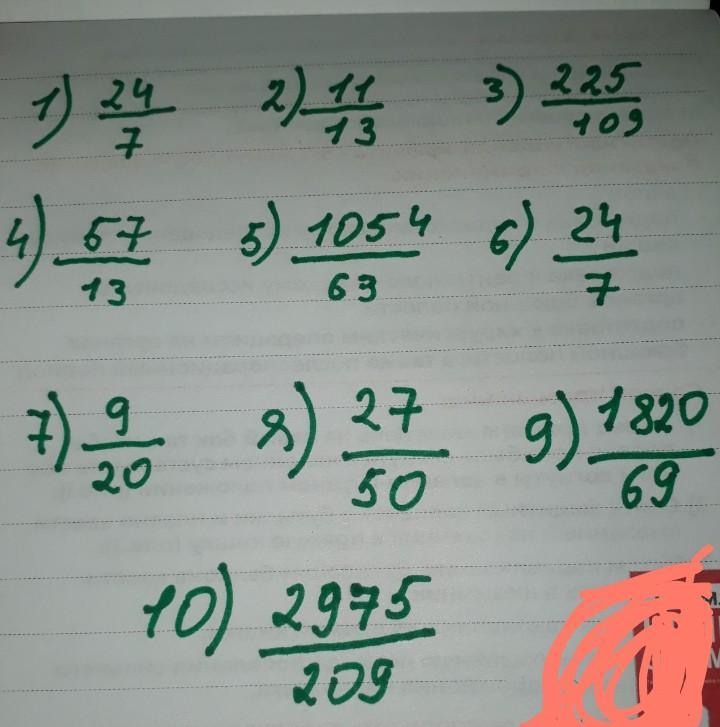 1) 24/7 2) 11/13 3) 225/109
4) 57/13 5) 1054/63 6) 24/7
7) 9/20 8) 27/50 9) 1820/69
10) 2975/209